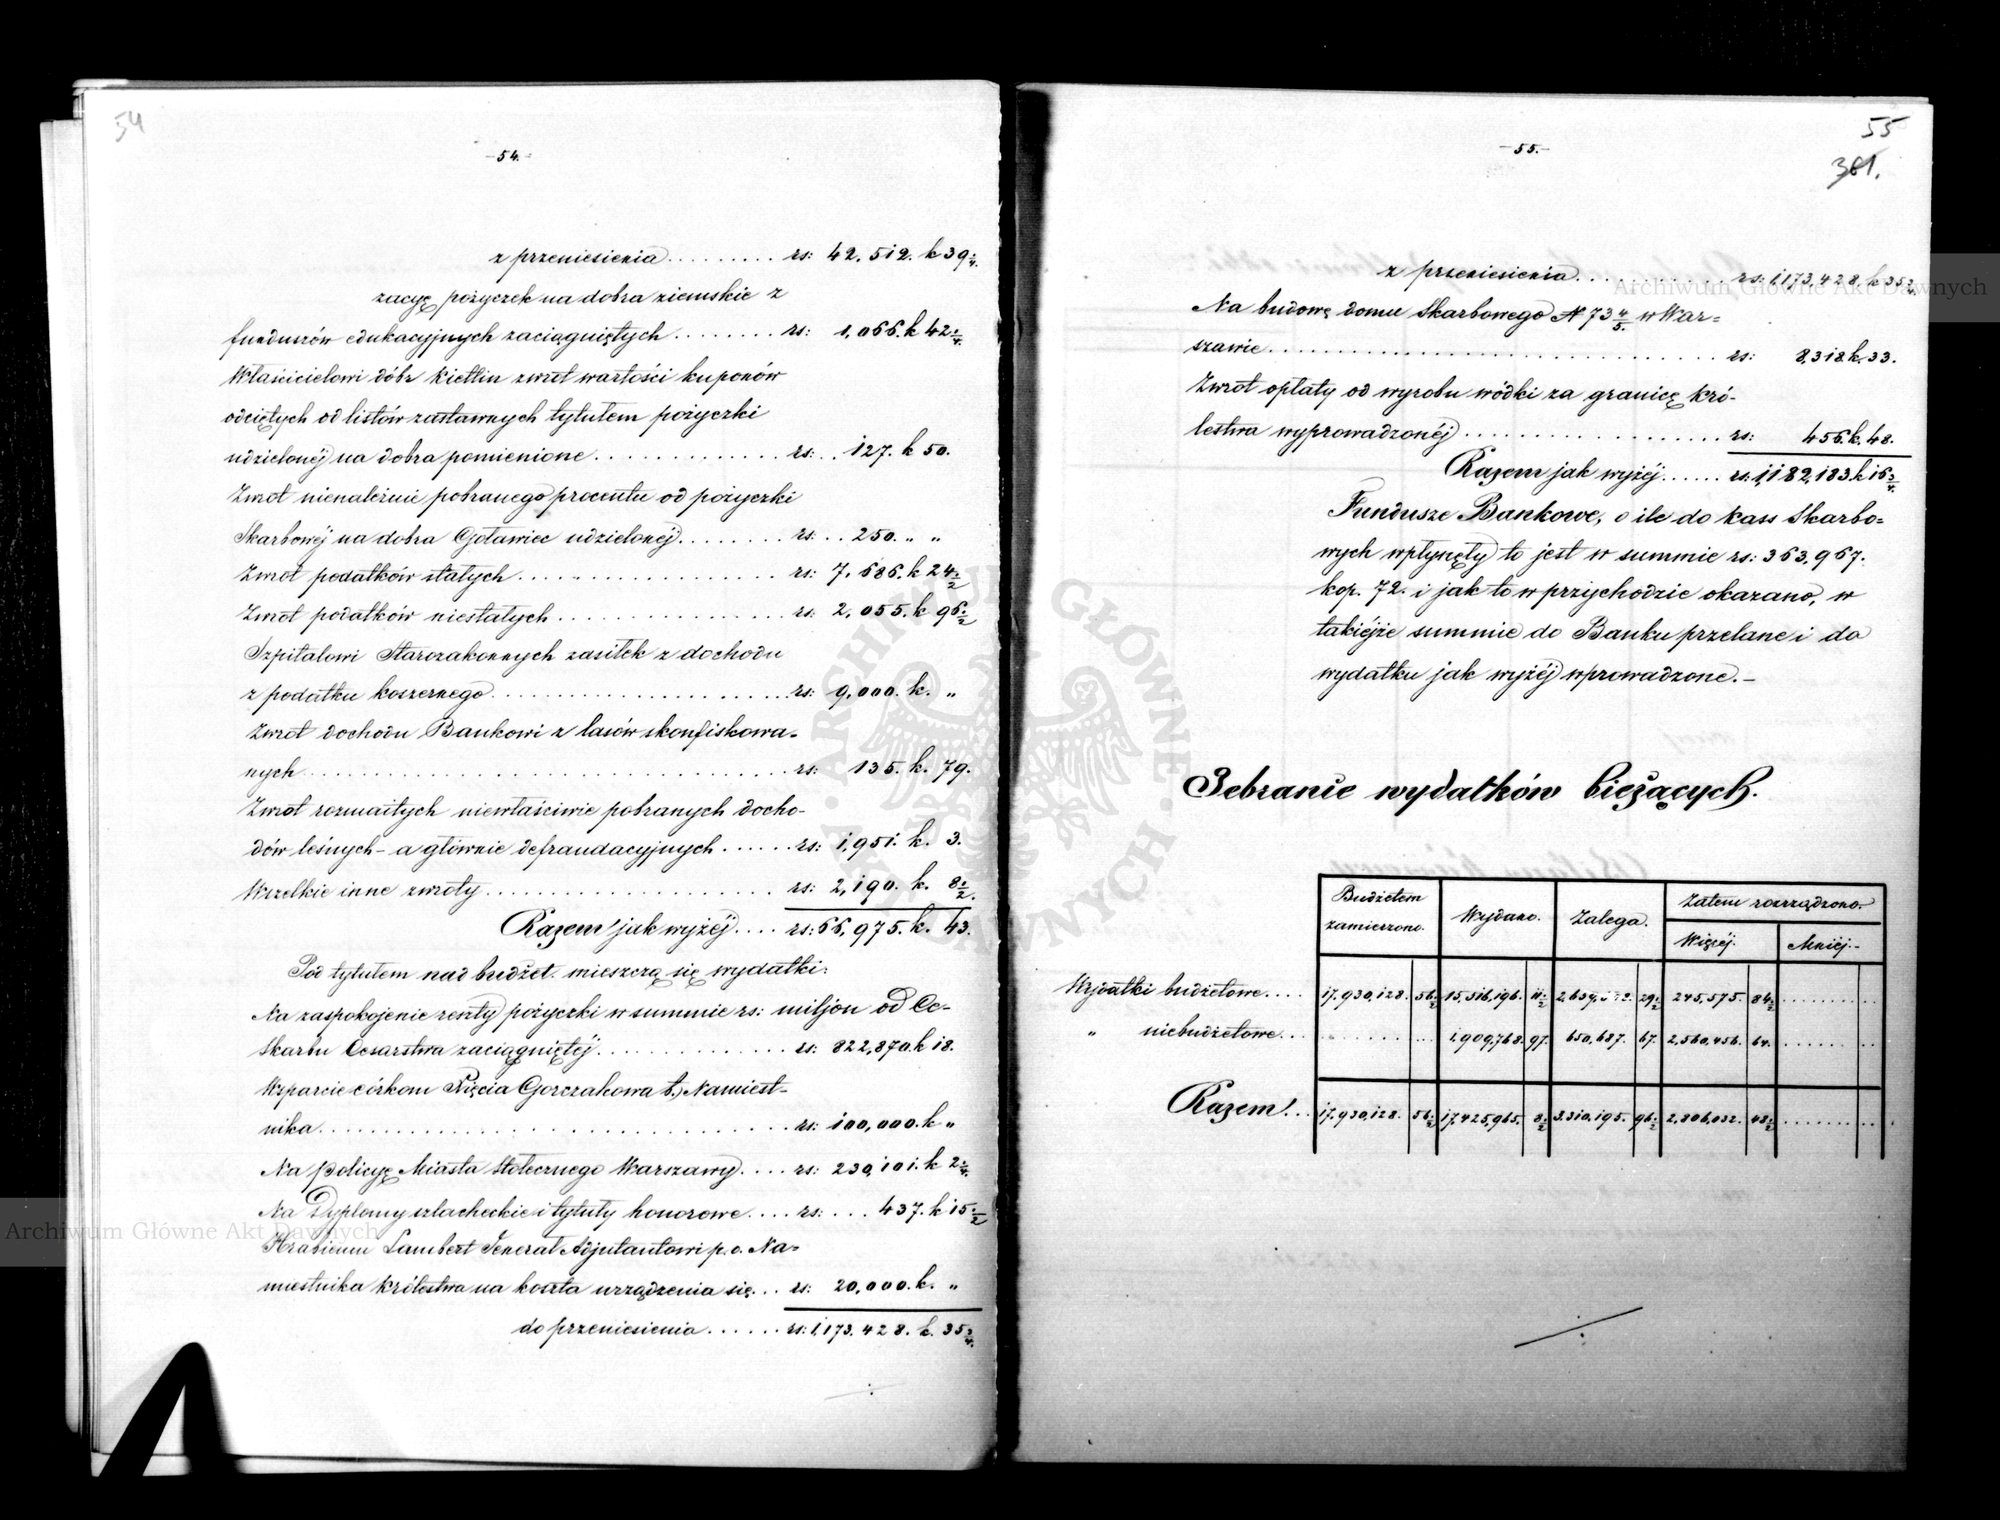 54
-54.-
z przeniesienia . . . . . . . . . rs: 42.512. k 39 3/4.
zacyę pożyczek na dobra ziemskie z
funduszów edukacyjnych zaciągniętych . . . . . . . rs: 1,066. k 42 1/4.
Właścicielowi dóbr Kietlin zwrot wartości kuponów
odciętych od listów zastawnych tytułem pożyczki
udzielonéj na dobra pomienione . . . . . . . . . . . . rs: . . 127. k 50.
Zwrot nienależnie pobranego procentu od pożyczki
Skarbowéj na dobra Goławiec udzielonéj . . . . . . . . rs: . . 250. „ „
Zwrot podatków stałych . . . . . . . . . . . . . . . . rs: 7.686. k 24 1/2
Zwrot podatków niestałych . . . . . . . . . . . . . . rs: 2.055. k 96 1/2
Szpitalowi Starozakonnych zasiłek z dochodu
z podatku koszernego . . . . . . . . . . . . . . . . . rs: 9,000. k. „
Zwrot dochodu Bankowi z lasów skonfiskowa-
nych . . . . . . . . . . . . . . . . . . . . . . . . . rs: 135. k. 79.
Zwrot rozmaitych niewłaściwie pobranych docho-
dów leśnych - a głównie defraudacyjnych . . . . . . rs: 1,951. k. 3.
Wszelkie inne zwroty . . . . . . . . . . . . . . . . . rs: 2,190. k. 8 1/2.
Razem jak wyżéj . . . . rs: 66,975. k. 43.
Pod tytułem nad budżet. mieszczą się wydatki:
Na zaspokojenie reszty pożyczki w summie rs: miljon od Ce-
Skarbu Cesarstwa zaciągniętéj . . . . . . . . . . . . rs: 822,870. k 18.
Wsparcie córkom Xięcia Gorczakowa b. Namiest-
nika . . . . . . . . . . . . . . . . . . . . . . . . . rs: 100,000. k „
Na policyę Miasta Stołecznego Warszawy . . . . rs: 230,101. k 2 1/4.
Na Dyplomy szlacheckie i tytuły honorowe . . . . rs: . . . 437. k 15 1/2
Hrabiemu Lambert Jenerał Adjutantowi p.o. Na-
miestnika Królestwa na koszta urządzenia się . . . rs: 20,000. k. „
do przeniesienia . . . . . . rs: 1,173.428. k. 35 3/4.
55
-55.-
361.
z przeniesienia . . . . . . . . . . rs: 1,173,428. k 35 3/4.
Na budowę domu Skarbowego N 73 4/5. w War-
szawie . . . . . . . . . . . . . . . . . . . . . . . . rs: 8,318. k. 33.
Zwrot opłaty od wyrobu wódki za granicę Kró-
lestwa wyprowadzonéj . . . . . . . . . . . . . . . . . rs: 456. k. 48.
Razem jak wyżéj . . . . . . rs: 1,182,183. k 16 3/4.
Fundusze Bankowe, o ile do kass Skarbo-
wych wpłynęły to jest w summie rs: 363,967.
kop. 72. i jak to w przychodzie okazano, w
takiéjże summie do Banku przelane i do
wydatku jak wyżéj wprowadzone. -
Zebranie wydatków bieżących.
Budżetem zamierzono. Wydano. Zalega. Zatem rozrządzono.
Więcéj. Mniéj.
Wydatki budżetowe . . . . 17.930,128. 56 1/2 15,516,196. 11 1/2 2,659, 29 1/2 245,575. 84 1/2
„ niebudżetowe . . . 1,909,768. 97. 650,687. 67. 2,560,456. 64.
Razem . . . 17.930,128. 56 1/2 17,425,965. 8 1/2 3.310,195. 96 1/2 2,806,032. 48 1/2
Archiwum Główne Akt Dawnych
Archiwum Główne Akt Dawnych
ARCHIWUM GŁÓWNE AKT DAWNYCH